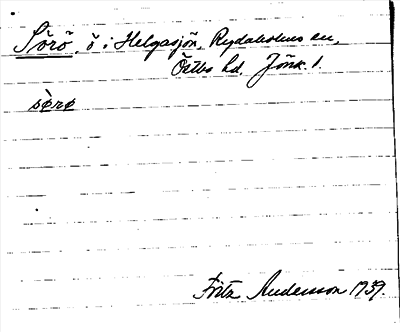 Sörö, ö i Helgasjön, Rydaholms sn,
Östbo hd. Jönk. l.
sø̀rø
Fritz Andersson 1939.